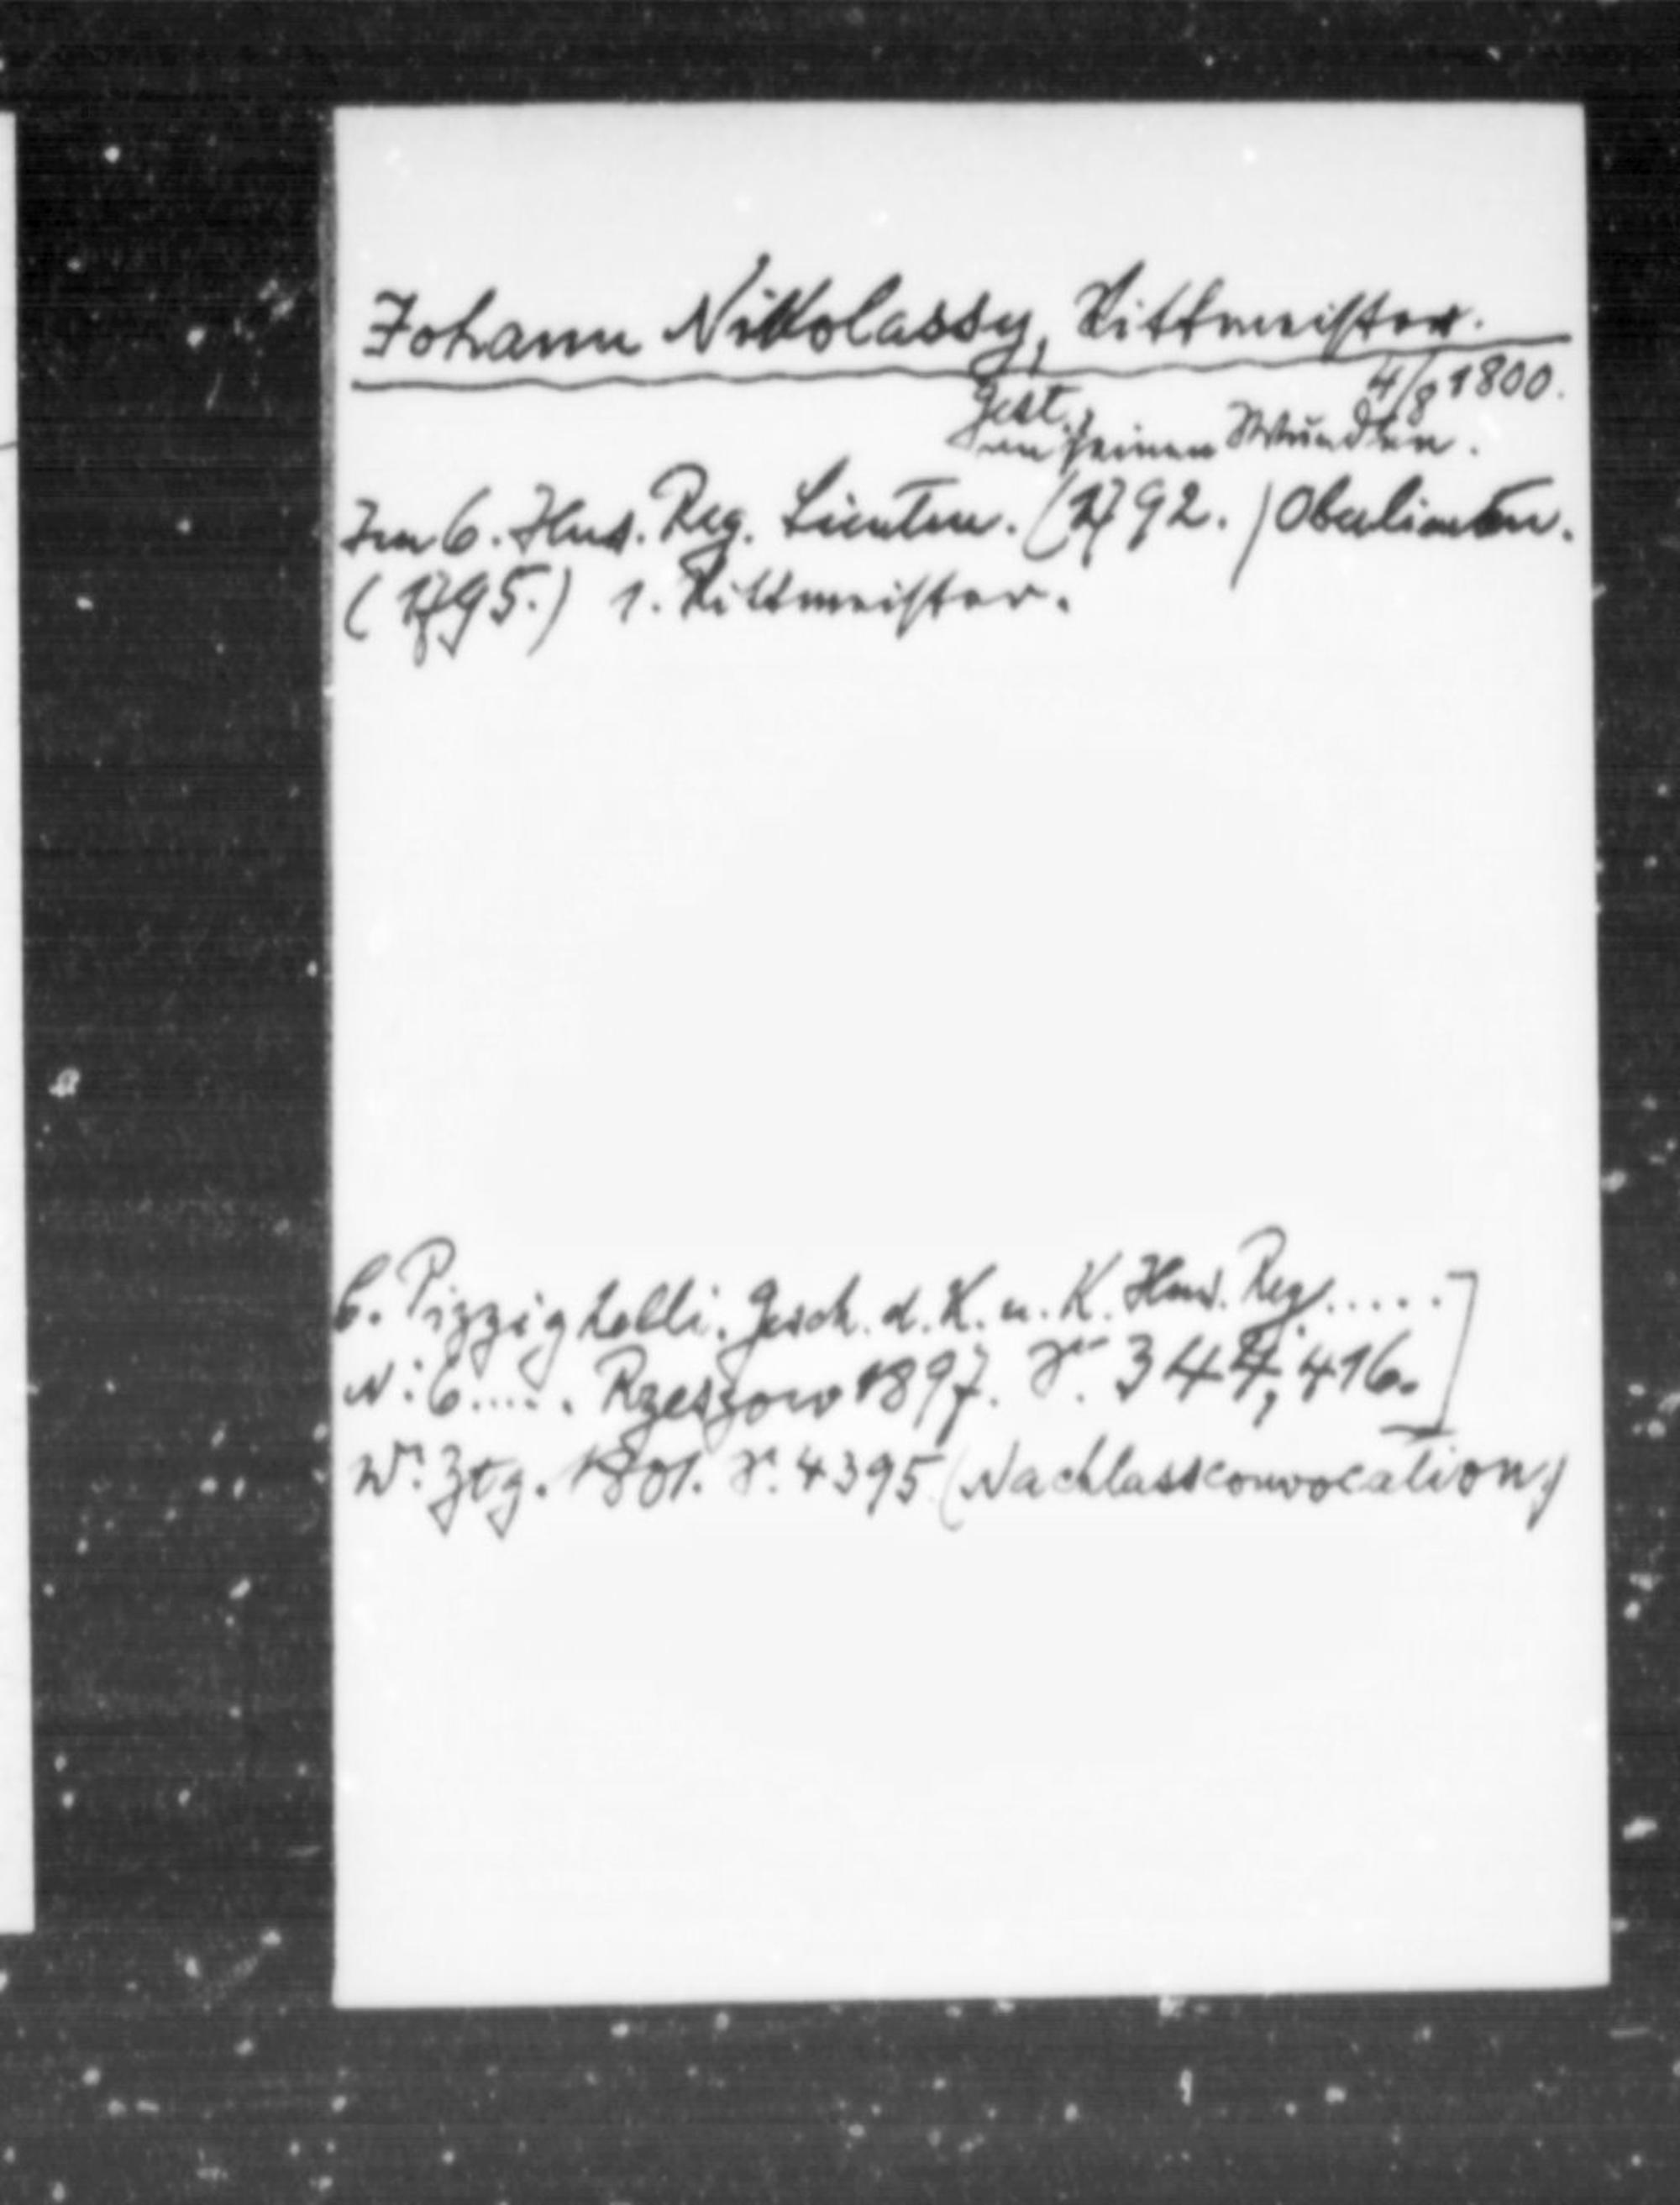 Johann Nikolassy, Rittmeister.
Gest. 4/8 1800.
an seinen Wunden.
Im 6. Hus. Reg. Lieuten. (1792.) Oberlieuten.
(1795.) 1. Rittmeister.
C. Pizzighelli. Gesch. d. K. u. K. Hus. Reg.....]
N: 6..... Rzeszow 1897. S. 344, 416.]
Wr. Ztg. 1801. S. 4395 (Nachlassconvocation)